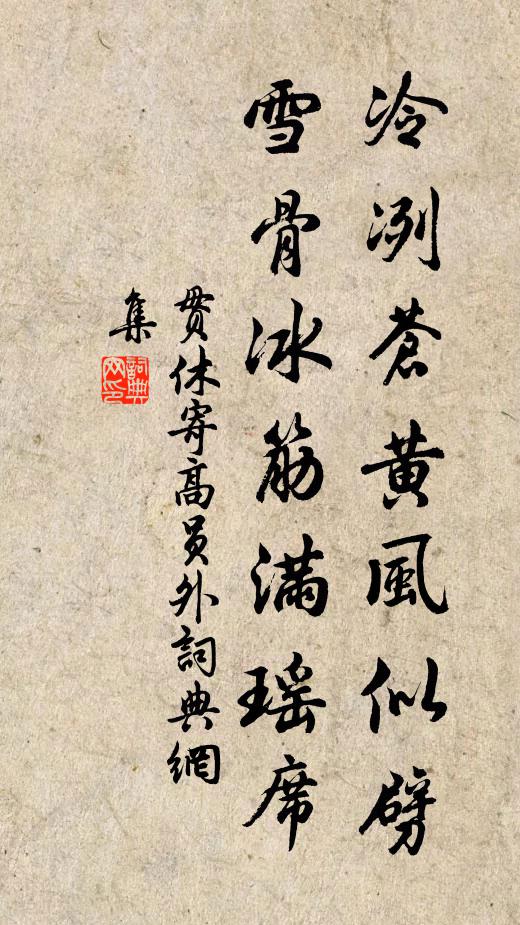 冷冽蒼黃風似劈
雪骨冰筋滿瑶席
贯休寄高员外詞典網
集
詞典
网印